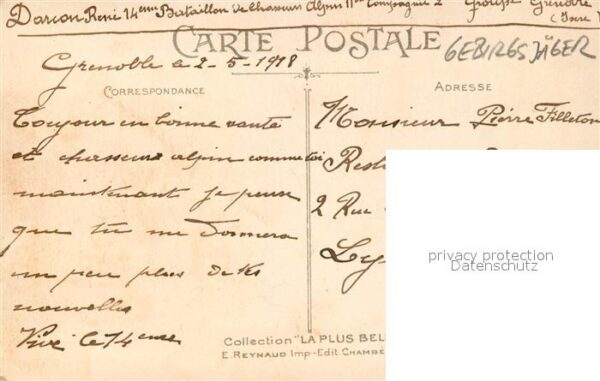 Darcon René 14eme Bataillon de Chasseurs Alpin 11e Compagnie 2 Groupe Grenoble
(Isère
CARTE POSTALE
GEBIRGSJÄGER
Grenoble le 2-5-1918
CORRESPONDANCE
ADRESSE
Toujour en bonne sante
et chasseurs alpin comme toi
maintenant je pense
que tu me donnera
un peu plus de tes
nouvelles
Vive le 14eme
Monsieur Pierre Filleton
Rest
2 Rue
Ly
privacy protection
Datenschutz
Collection "LA PLUS BEL
E. REYNAUD Imp-Edit CHAMBE